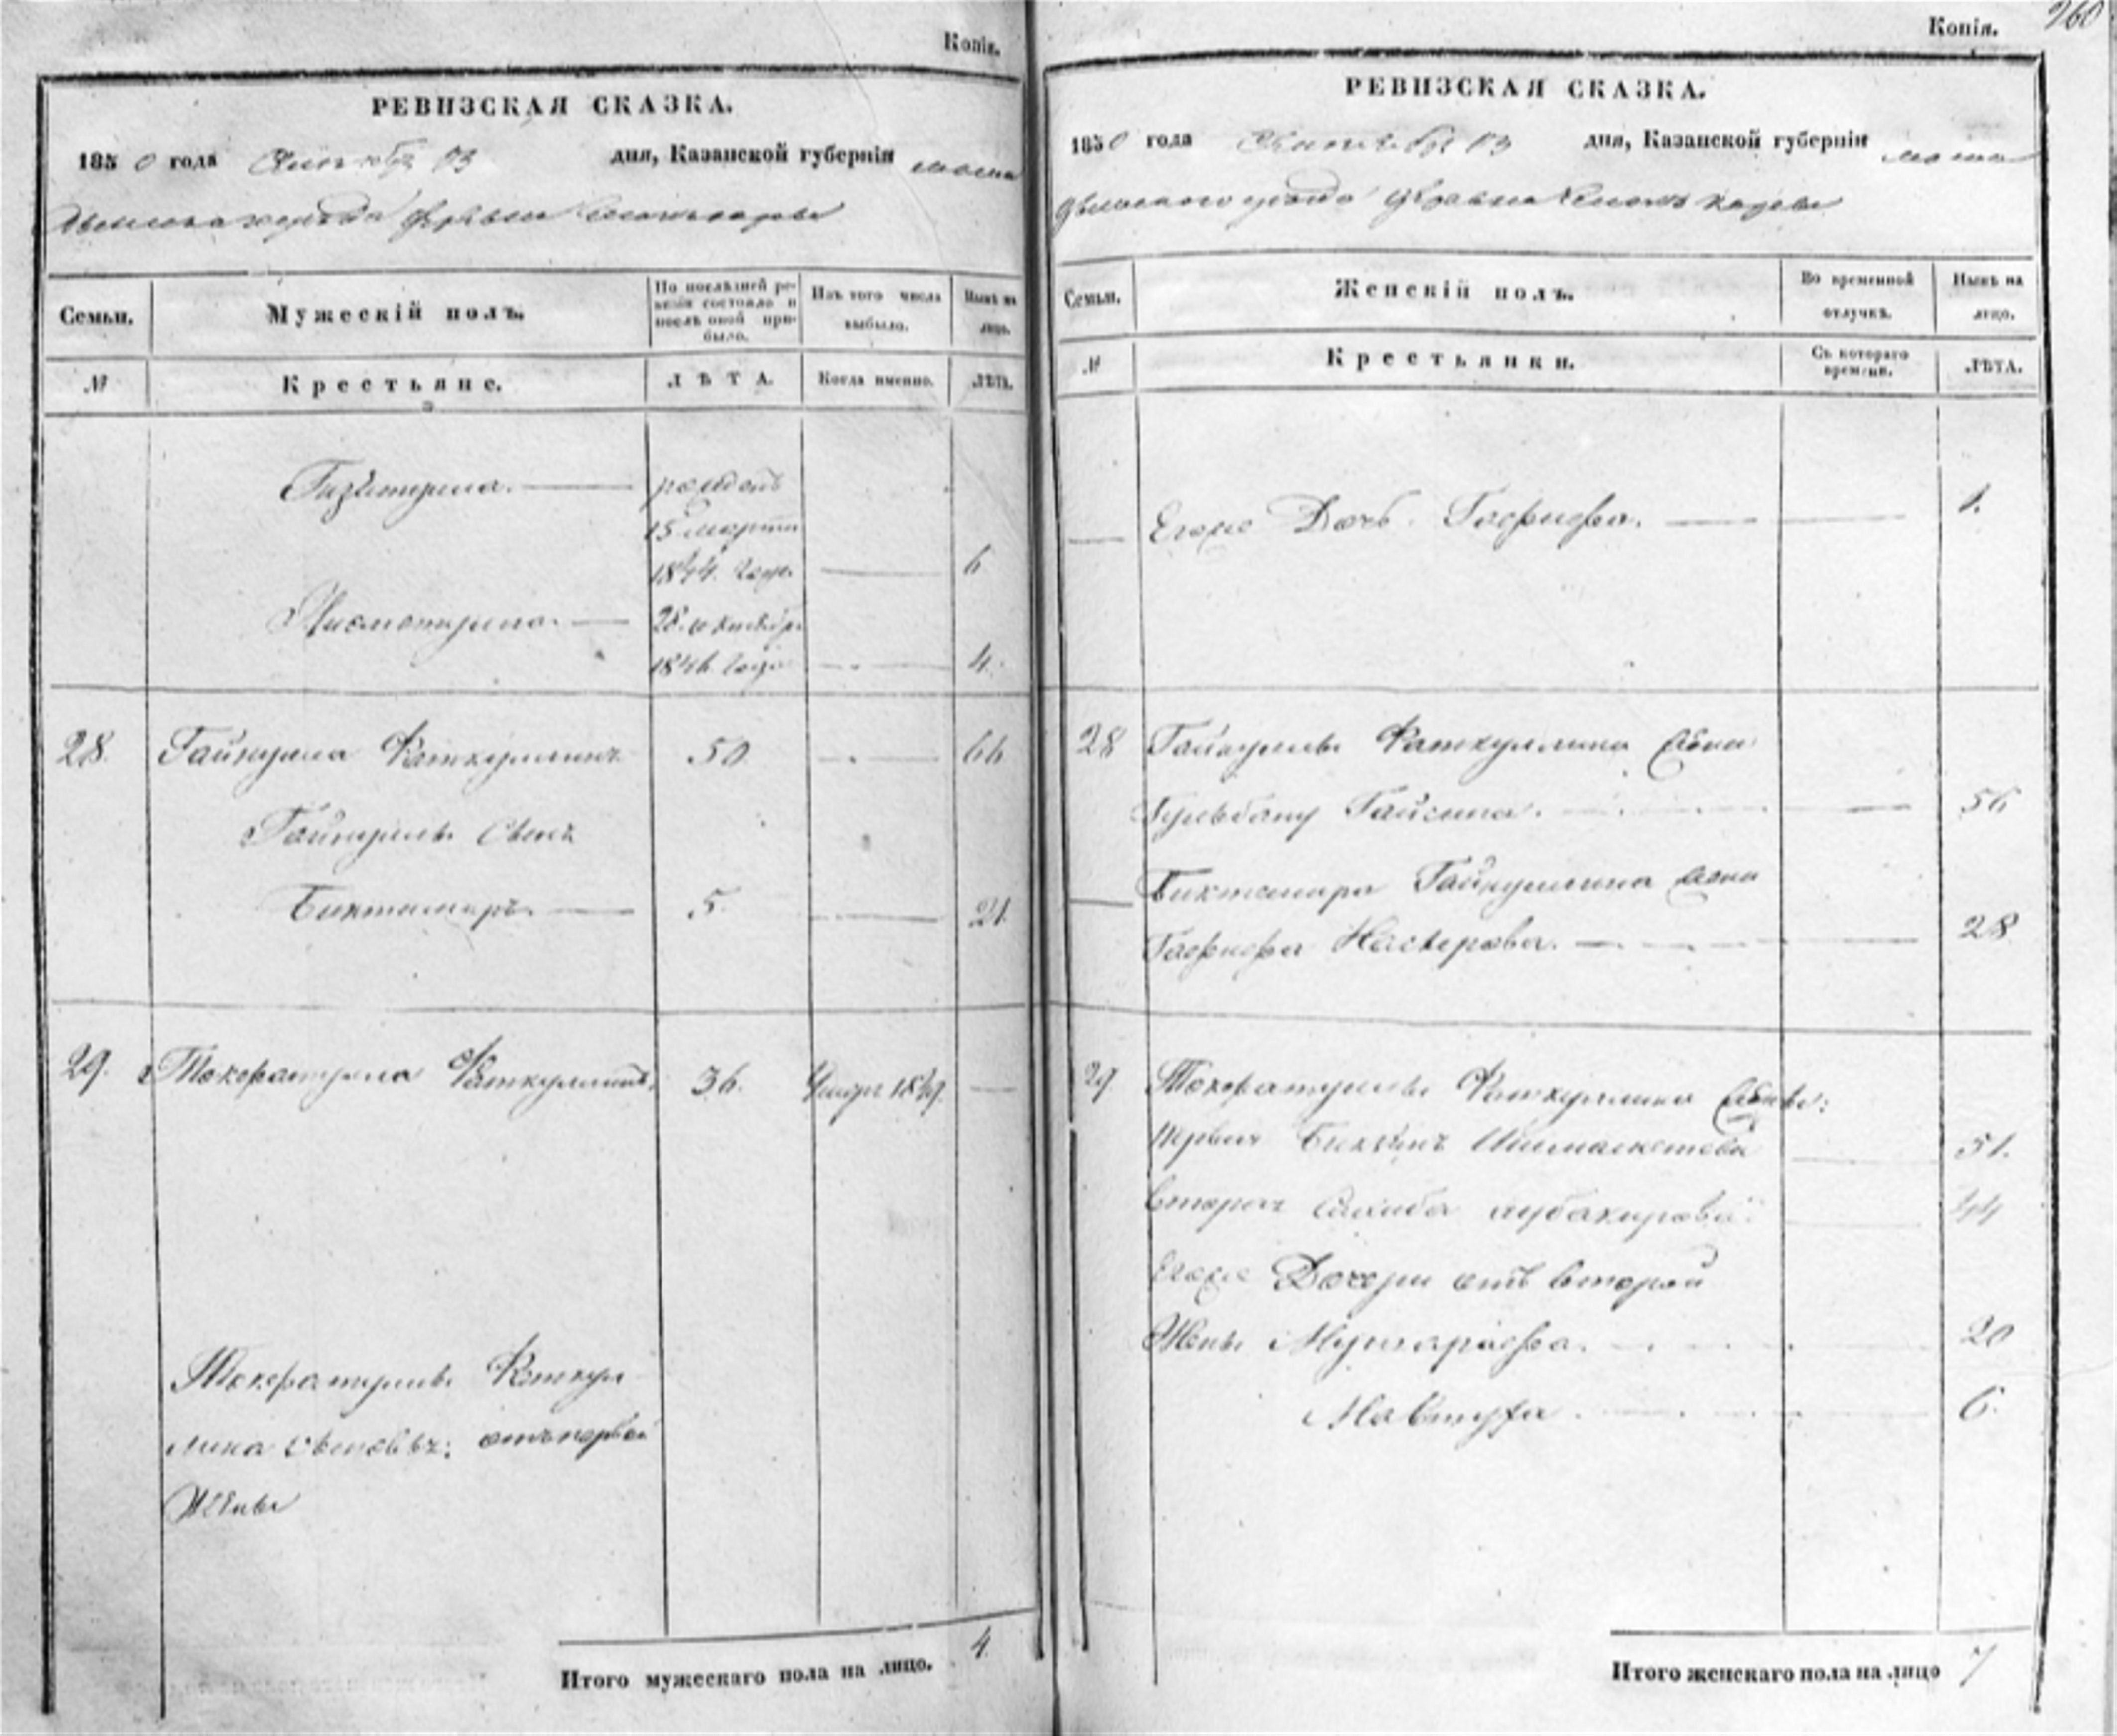 Копія.
РЕВИЗСКАЯ СКАЗКА.
1850 года Октября 13 дня, Казанской губерніи мама
дышскаго уѣзда деревни
Семьи.
Мужескій полъ.
По послѣдней ре-
визіи состояло и
послѣ оной при-
было.
Изъ того числа
выбыло.
Нынѣ на
лицо.
№
Крестьяне.
ЛѢТА.
Когда именно.
ЛѢТА.
рожденъ
15 марта
1844. года 6
28 октября
1846 года 4.
28. Гайнулла Фаткуллинъ 50 66
Гайнуллы Сынъ
Биктимиръ 5. 21.
29. Фаткуллинъ. 36. Умеръ 1849.
Фаткул
лина сыновья: отъ первой
Жены
Итого мужескаго пола на лицо. 4
260
Копія.
РЕВИЗСКАЯ СКАЗКА.
1850 года Октября 13 дня, Казанской губерніи мама
дышскаго уѣзда деревни
Семьи.
Женскій полъ.
Во временной
отлучкѣ.
Нынѣ на
лицо.
№
Крестьянки.
Съ котораго
времени.
ЛѢТА.
Егоже Дочь Гафифа. 1.
28 Гайнуллы Фаткуллина Жена
Гульбану Гайсина. 56
Биктимира Гайнуллина жена
Гафифа Насырова. 28
29 Фаткуллина Жены:
первая 51.
вторая Сахиба Мубакирова 44
Егоже Дочери отъ второй
Жены 20
6.
Итого женскаго пола на лицо 7